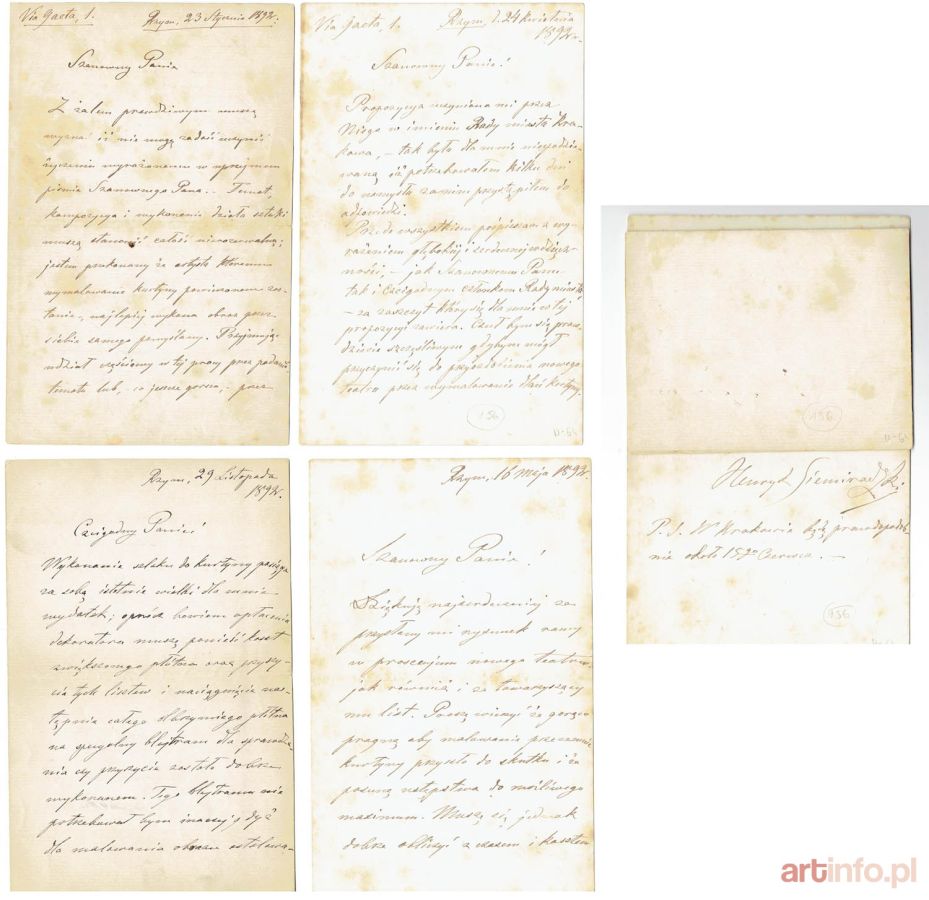 Via Gaeta, 1. Rzym, 23 Stycznia 1892r.
Szanowny Panie
Z żalem prawdziwym muszę
wyznać iż nie mogę zadość uczynić
życzeniu wyrażonemu w uprzejmem
piśmie Szanownego Pana. – Temat,
kompozycya i wykonanie dzieła sztuki
muszą stanowić całość nierozerwalną;
jestem przekonany że artysta któremu
wymalowanie kurtyny powierzonem zos-
tanie, najlepiej wykona obraz przez
siebie samego pomyślany. Przyjmując
udział częściowy w tej pracy przez podanie
tematu lub, co jeszcze gorsza, – przez
Via Gaeta, 1. Rzym, d. 24 kwietnia
1892r.
Szanowny Panie!
Propozycya uczyniona mi przez
Niego w imieniu Rady miasta Kra-
kowa, – tak była dla mnie niespodzie-
waną iż potrzebowałem kilku dni
do namysłu zanim przystąpiłem do
odpowiedzi.
Przedewszystkiem pośpieszam z wy-
rażeniem głębokiej i serdecznej wdzięcz-
ności, – jak Szanownemu Panu
tak i Czcigodnym członkom Rady miasta
– za zaszczyt który się dla mnie w tej
propozycyi zawiera. Czuł bym się praw-
dziwie szczęśliwym gdybym mógł
przyczynić się do przyozdobienia nowego
teatru przez wymalowanie doń kurtyny.
156
Rzym, 29 Listopada
1892r.
Czcigodny Panie!
Wykonanie szlaku do kurtyny pociąga
za sobą istotnie wielki dla mnie
wydatek; oprócz bowiem opłacenia
dekoratora muszę ponieść koszt
zwiększonego płótna oraz przyszy-
cia tych listew i naciągnięcia nas-
tępnie całego olbrzymiego płótna
na specyalny blejtram dla sprawdze-
nia czy przyszycie zostało dobrze
wykonanem. Tego blejtramu nie
potrzebował bym inaczej, gdyż
dla malowania obrazu
Rzym, 16 Maja 1892r.
Szanowny Panie!
Dziękuję najserdeczniej za
przysłany mi rysunek ramy
w proscenjum nowego teatru,
jak również i za towarzyszący
mu list. Proszę wierzyć że gorąco
pragnę aby malowanie przezemnie
kurtyny przyszło do skutku i że
posunę ustępstwa do możliwego
maximum. Muszę się jednak
dobrze obliczyć z czasem i kosztem
156
Henryk Siemiradzki.
P. S. W Krakowie będę prawdopodob-
nie około 15go Czerwca. –
156
artinfo.pl